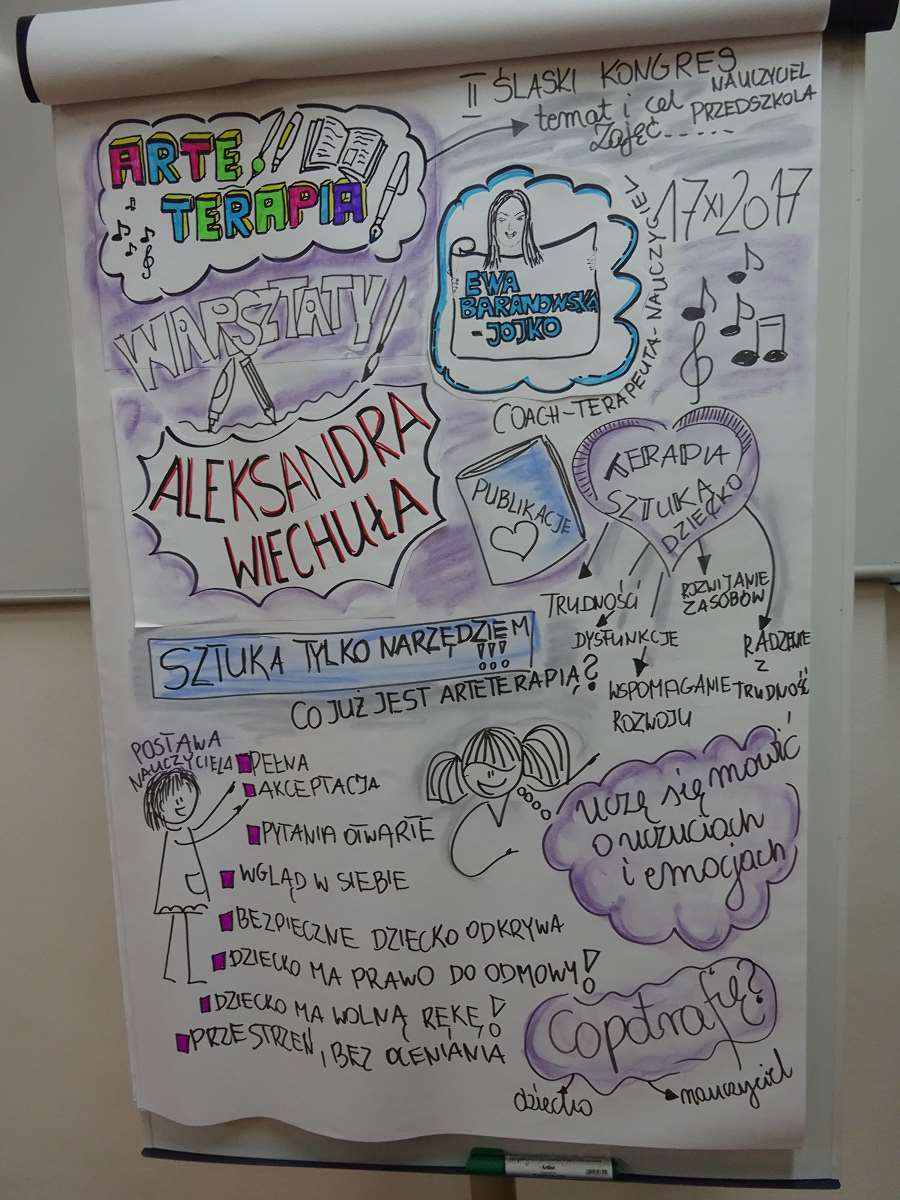 II ŚLASKI KONGRES
NAUCZYCIEL
PRZEDSZKOLA
temat i cel
zajęć.....
ARTE
TERAPIA
WARSZTATY
17 XI 2017
EWA
BARANOWSKA
-JOJKO
COACH-TERAPEUTA-NAUCZYCIEL
ALEKSANDRA
WIECHUŁA
PUBLIKACJE
TERAPIA
SZTUKĄ
DZIECKO
TRUDNOŚCI
DYSFUNKCJE
WSPOMAGANIE
ROZWOJU
ROZWIJANIE
ZASOBÓW
RADZENIE
Z
TRUDNOŚĆ
SZTUKA TYLKO NARZĘDZIEM!!!
CO JUŻ JEST ARTETERAPIĄ?
POSTAWA
NAUCZYCIELA
PEŁNA
AKCEPTACJA
PYTANIA OTWARTE
WGLĄD W SIEBIE
BEZPIECZNE DZIECKO ODKRYWA
DZIECKO MA PRAWO DO ODMOWY!
DZIECKO MA WOLNĄ RĘKĘ!
PRZESTRZEŃ, BEZ OCENIANIA
uczę się mówić
o uczuciach
i emocjach
Co potrafię?
dziecko
nauczyciel